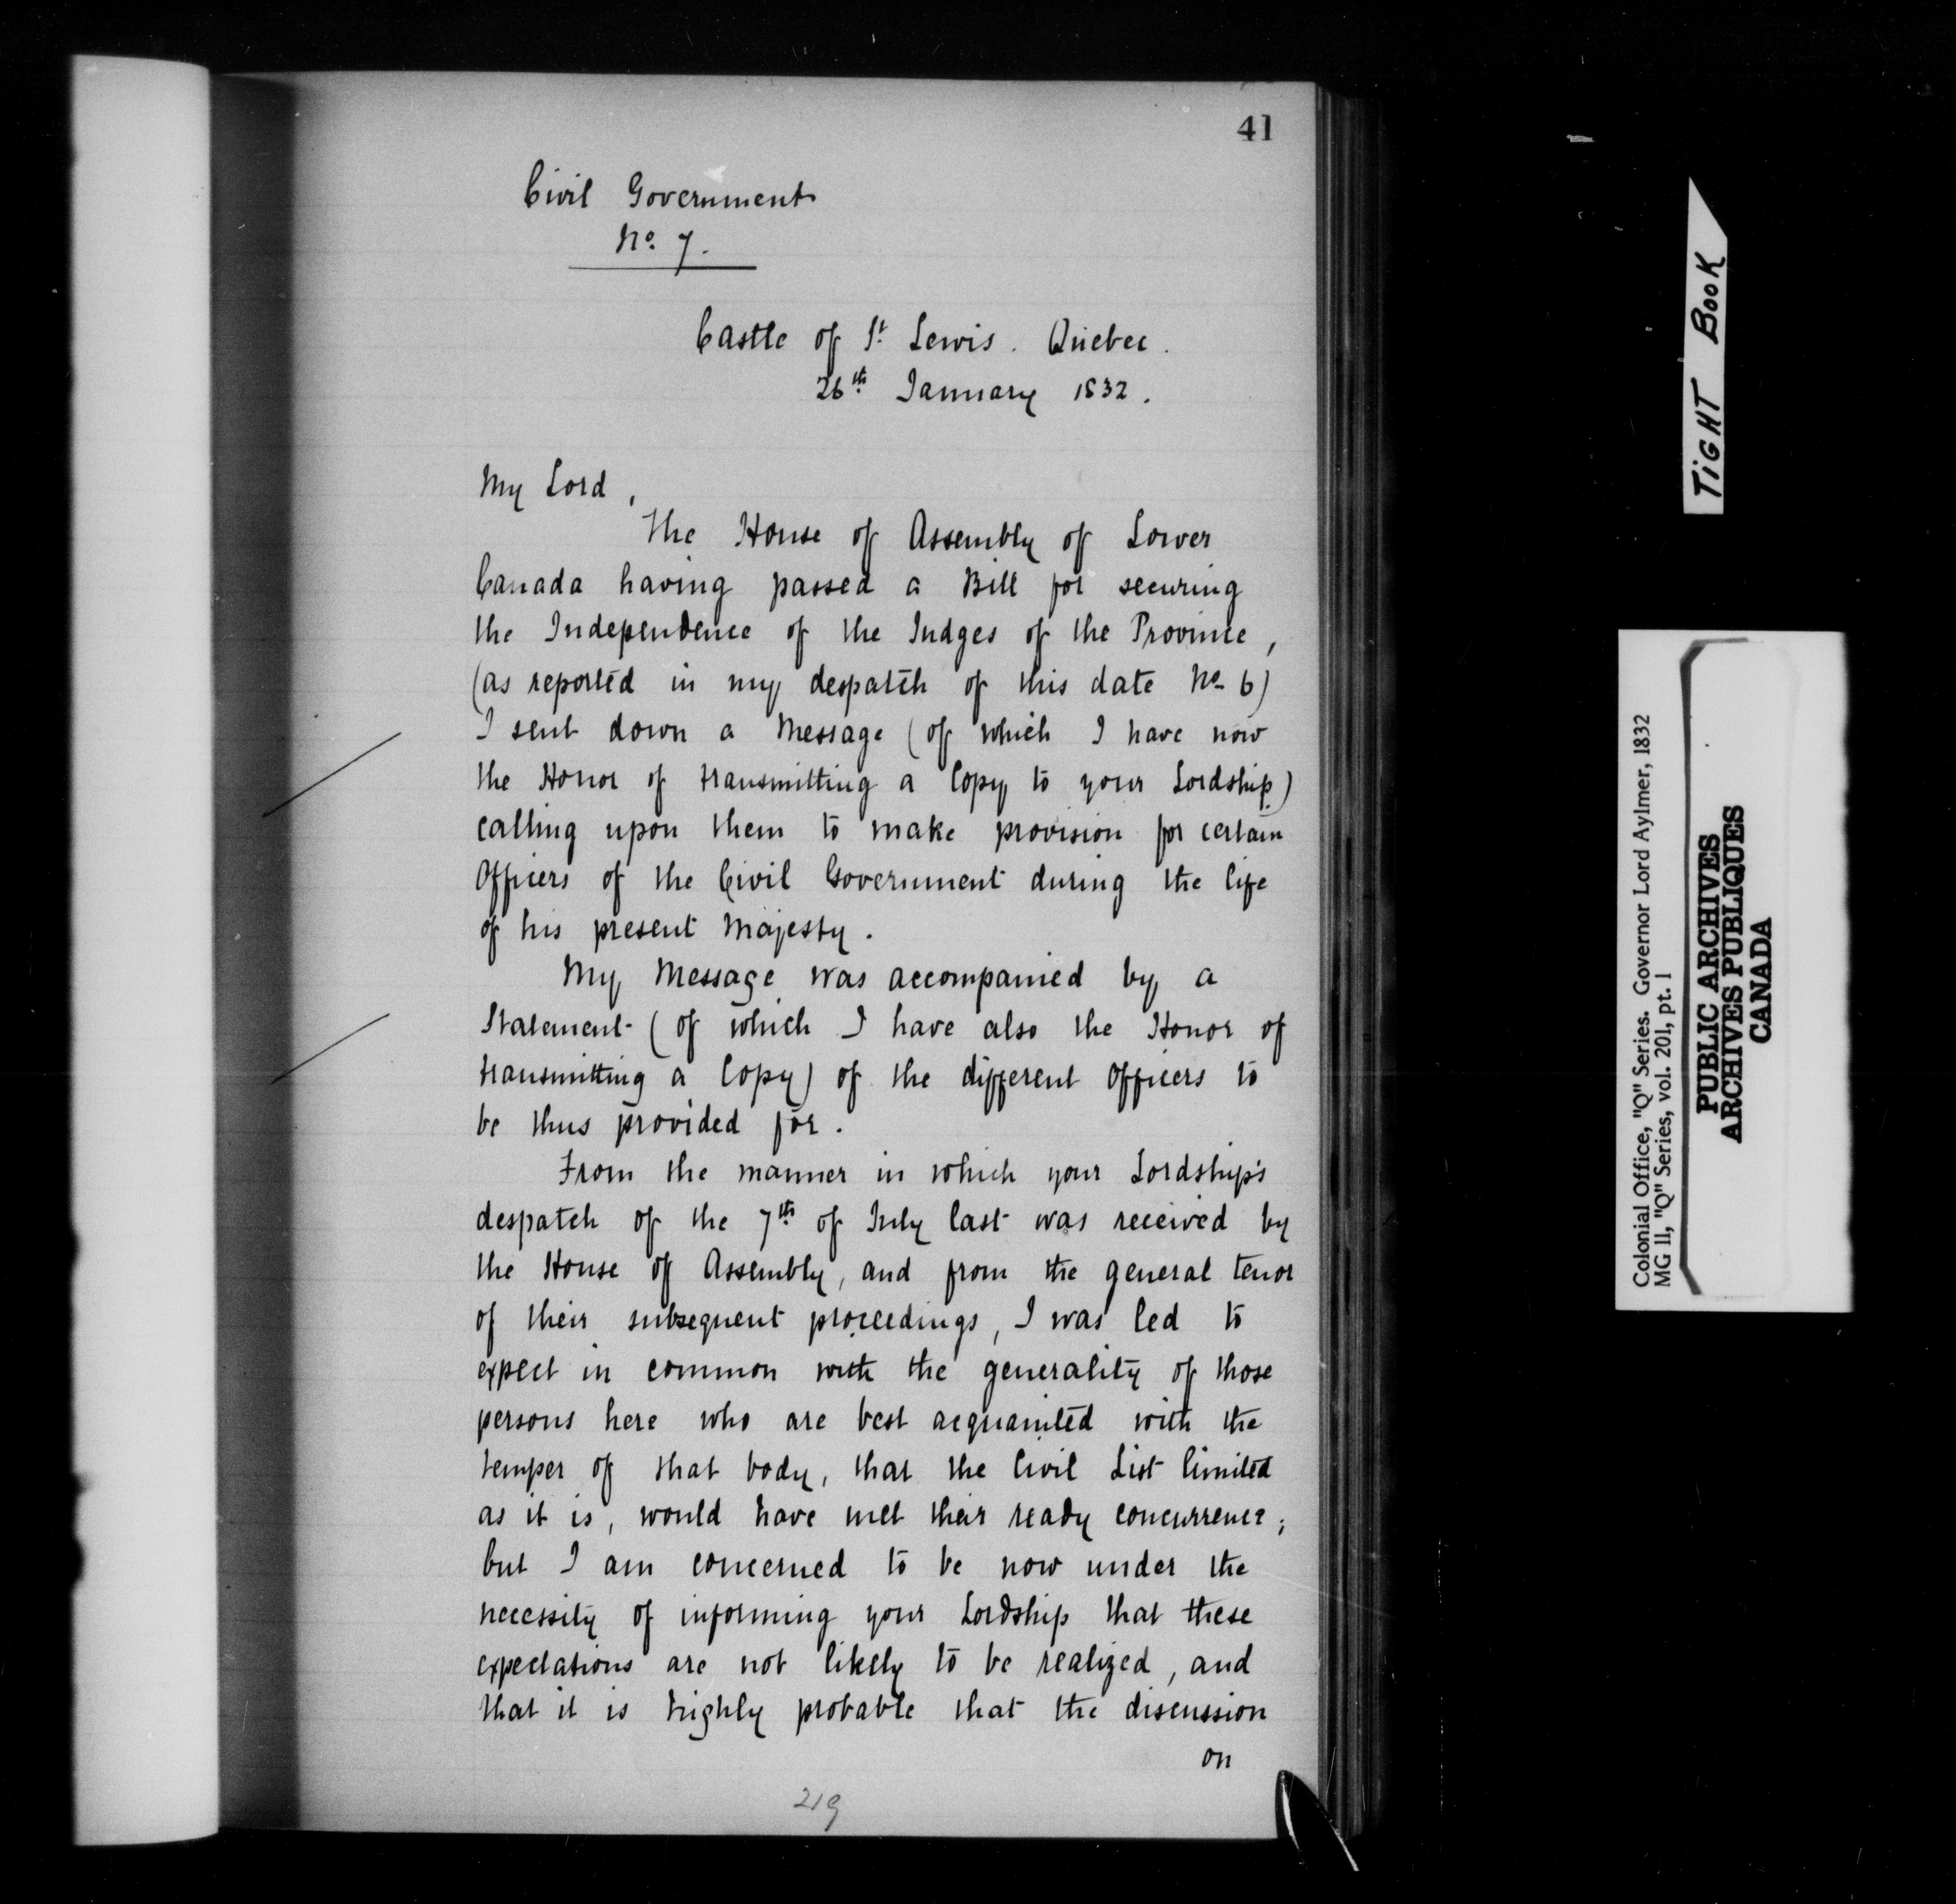 41
Civil Government
No. 7.
Castle of St. Lewis. Quebec.
26th January 1832.
My Lord,
The House of Assembly of Lower
Canada having passed a Bill for securing
the Independence of the Judges of the Province,
(as reported in my despatch of this date No 6)
I sent down a Message (of which I have now
the Honor of transmitting a Copy to your Lordship)
calling upon them to make provision for certain
Officers of the Civil Government during the life
of his present Majesty.
My Message was accompanied by a
Statement (of which I have also the Honor of
transmitting a Copy) of the different Officers to
be thus provided for.
From the manner in which your Lordship's
despatch of the 7th of July last was received by
the House of Assembly, and from the general tenor
of their subsequent proceedings, I was led to
expect in common with the generality of those
persons here who are best acquainted with the
temper of that body, that the Civil List limited
as it is, would have met their ready concurrence;
but I am concerned to be now under the
necessity of informing your Lordship that these
expectations are not likely to be realized, and
that it is highly probable that the discussion
on
219
TIGHT BOOK
Colonial Office, "Q" Series. Governor Lord Aylmer, 1832
MG 11, "Q" Series, vol. 201, pt. 1
PUBLIC ARCHIVES
ARCHIVES PUBLIQUES
CANADA